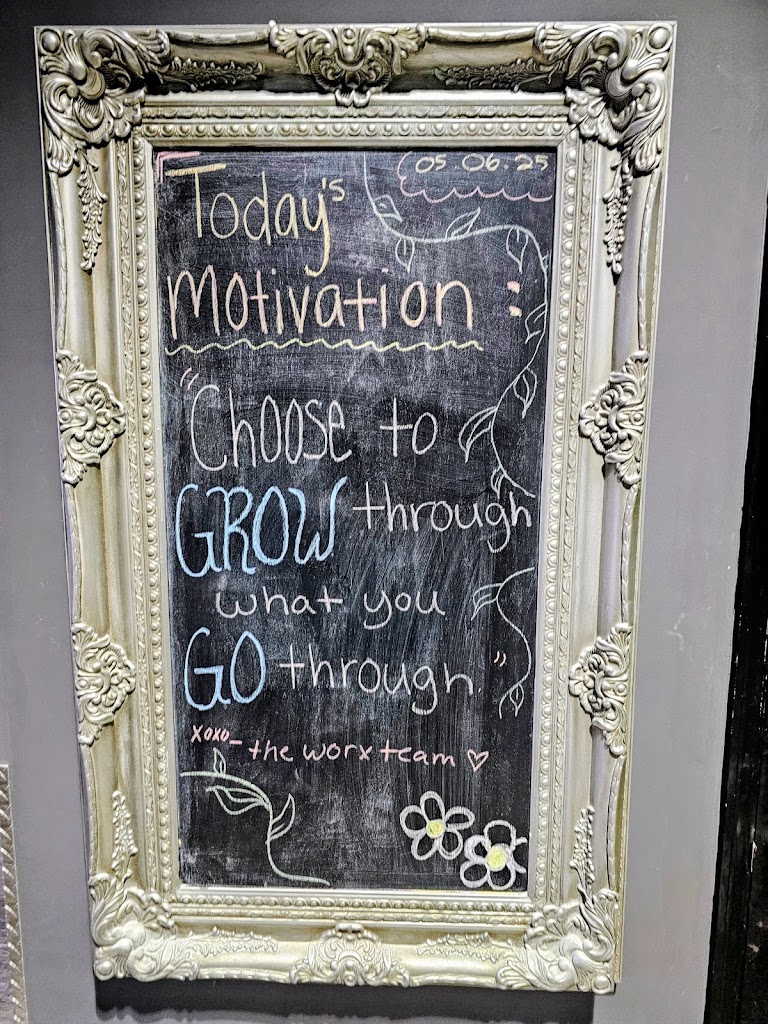 05.06.25
Today's
motivation:
"Choose to
GROW through
what you
GO through."
xoxo- the worx team ♡